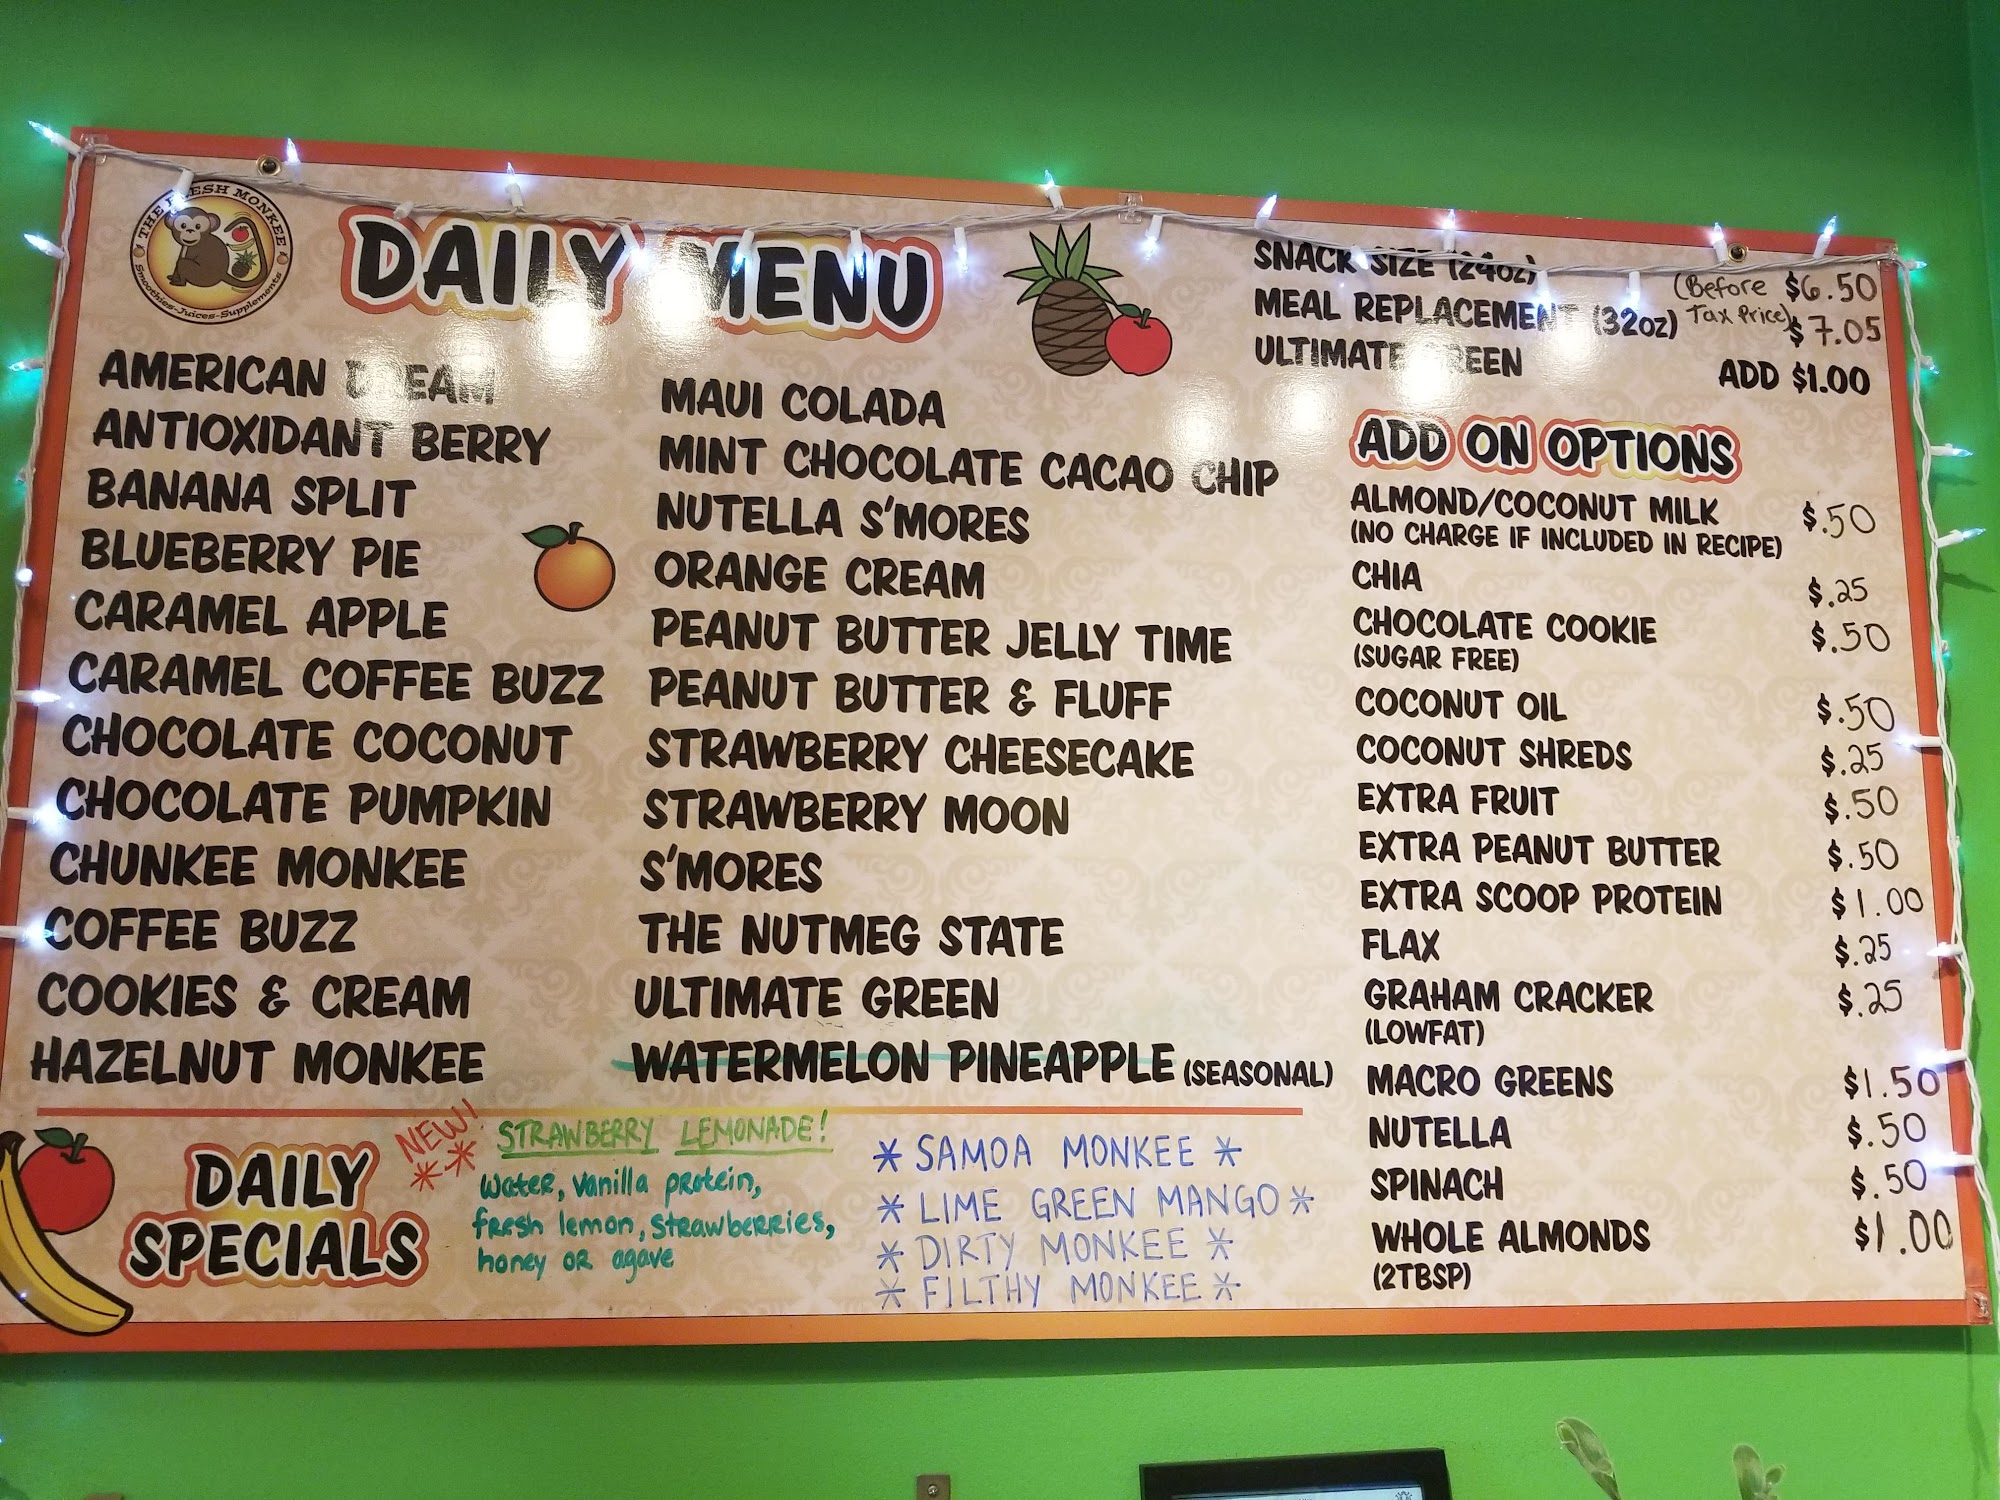 THE FRESH MONKEE
Smoothies-Juices-Supplements
DAILY MENU
AMERICAN DREAM
ANTIOXIDANT BERRY
BANANA SPLIT
BLUEBERRY PIE
CARAMEL APPLE
CARAMEL COFFEE BUZZ
CHOCOLATE COCONUT
CHOCOLATE PUMPKIN
CHUNKEE MONKEE
COFFEE BUZZ
COOKIES & CREAM
HAZELNUT MONKEE
MAUI COLADA
MINT CHOCOLATE CACAO CHIP
NUTELLA S'MORES
ORANGE CREAM
PEANUT BUTTER JELLY TIME
PEANUT BUTTER & FLUFF
STRAWBERRY CHEESECAKE
STRAWBERRY MOON
S'MORES
THE NUTMEG STATE
ULTIMATE GREEN
WATERMELON PINEAPPLE (SEASONAL)
SNACK SIZE (24oz) (Before $6.50
MEAL REPLACEMENT (32oz) Tax Price) $7.05
ULTIMATE GREEN ADD $1.00
ADD ON OPTIONS
ALMOND/COCONUT MILK $.50
(NO CHARGE IF INCLUDED IN RECIPE)
CHIA $.25
CHOCOLATE COOKIE $.50
(SUGAR FREE)
COCONUT OIL $.50
COCONUT SHREDS $.25
EXTRA FRUIT $.50
EXTRA PEANUT BUTTER $.50
EXTRA SCOOP PROTEIN $1.00
FLAX $.25
GRAHAM CRACKER $.25
(LOWFAT)
MACRO GREENS $1.50
NUTELLA $.50
SPINACH $.50
WHOLE ALMONDS $1.00
(2TBSP)
DAILY
SPECIALS
NEW!
**
STRAWBERRY LEMONADE!
Water, vanilla protein,
fresh lemon, strawberries,
honey or agave
* SAMOA MONKEE *
* LIME GREEN MANGO *
* DIRTY MONKEE *
* FILTHY MONKEE *